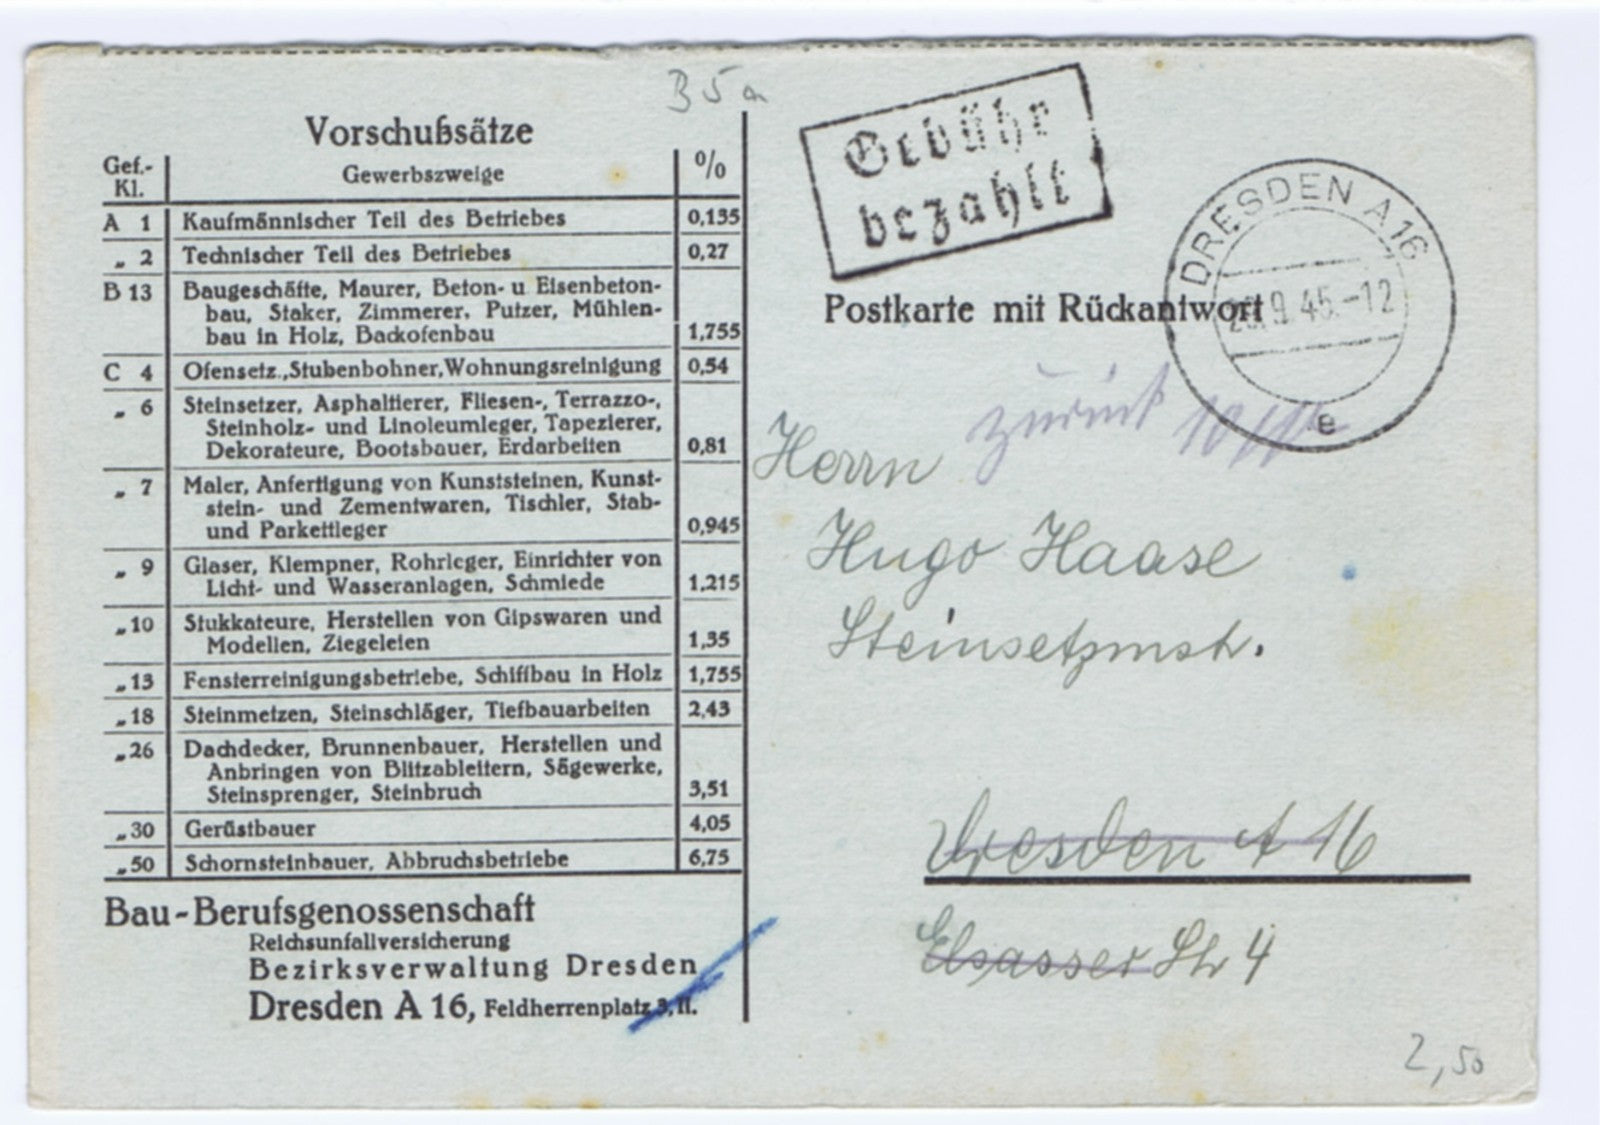 B 5 a
Vorschußsätze
Gef.-Kl. Gewerbszweige %
A 1 Kaufmännischer Teil des Betriebes 0,135
„ 2 Technischer Teil des Betriebes 0,27
B 13 Baugeschäfte, Maurer, Beton- u Eisenbeton-
bau, Staker, Zimmerer, Putzer, Mühlen-
bau in Holz, Backofenbau 1,755
C 4 Ofensetz.,Stubenbohner,Wohnungsreinigung 0,54
„ 6 Steinsetzer, Asphaltierer, Fliesen-, Terrazzo-,
Steinholz- und Linoleumleger, Tapezierer,
Dekorateure, Bootsbauer, Erdarbeiten 0,81
„ 7 Maler, Anfertigung von Kunststeinen, Kunst-
stein- und Zementwaren, Tischler, Stab-
und Parkettleger 0,945
„ 9 Glaser, Klempner, Rohrleger, Einrichter von
Licht- und Wasseranlagen, Schmiede 1,215
„ 10 Stukkateure, Herstellen von Gipswaren und
Modellen, Ziegeleien 1,35
„ 13 Fensterreinigungsbetriebe, Schiffbau in Holz 1,755
„ 18 Steinmetzen, Steinschläger, Tiefbauarbeiten 2,43
„ 26 Dachdecker, Brunnenbauer, Herstellen und
Anbringen von Blitzableitern, Sägewerke,
Steinsprenger, Steinbruch 3,51
„ 30 Gerüstbauer 4,05
„ 50 Schornsteinbauer, Abbruchsbetriebe 6,75
Bau-Berufsgenossenschaft
Reichsunfallversicherung
Bezirksverwaltung Dresden
Dresden A 16, Feldherrenplatz 3, II.
Gebühr
bezahlt
DRESDEN A16
9.45.-12
e
Postkarte mit Rückantwort
zurück
Herrn
Hugo Haase
Steinsetzmstr.
Dresden A 16
Elsasser Str 4
2,50